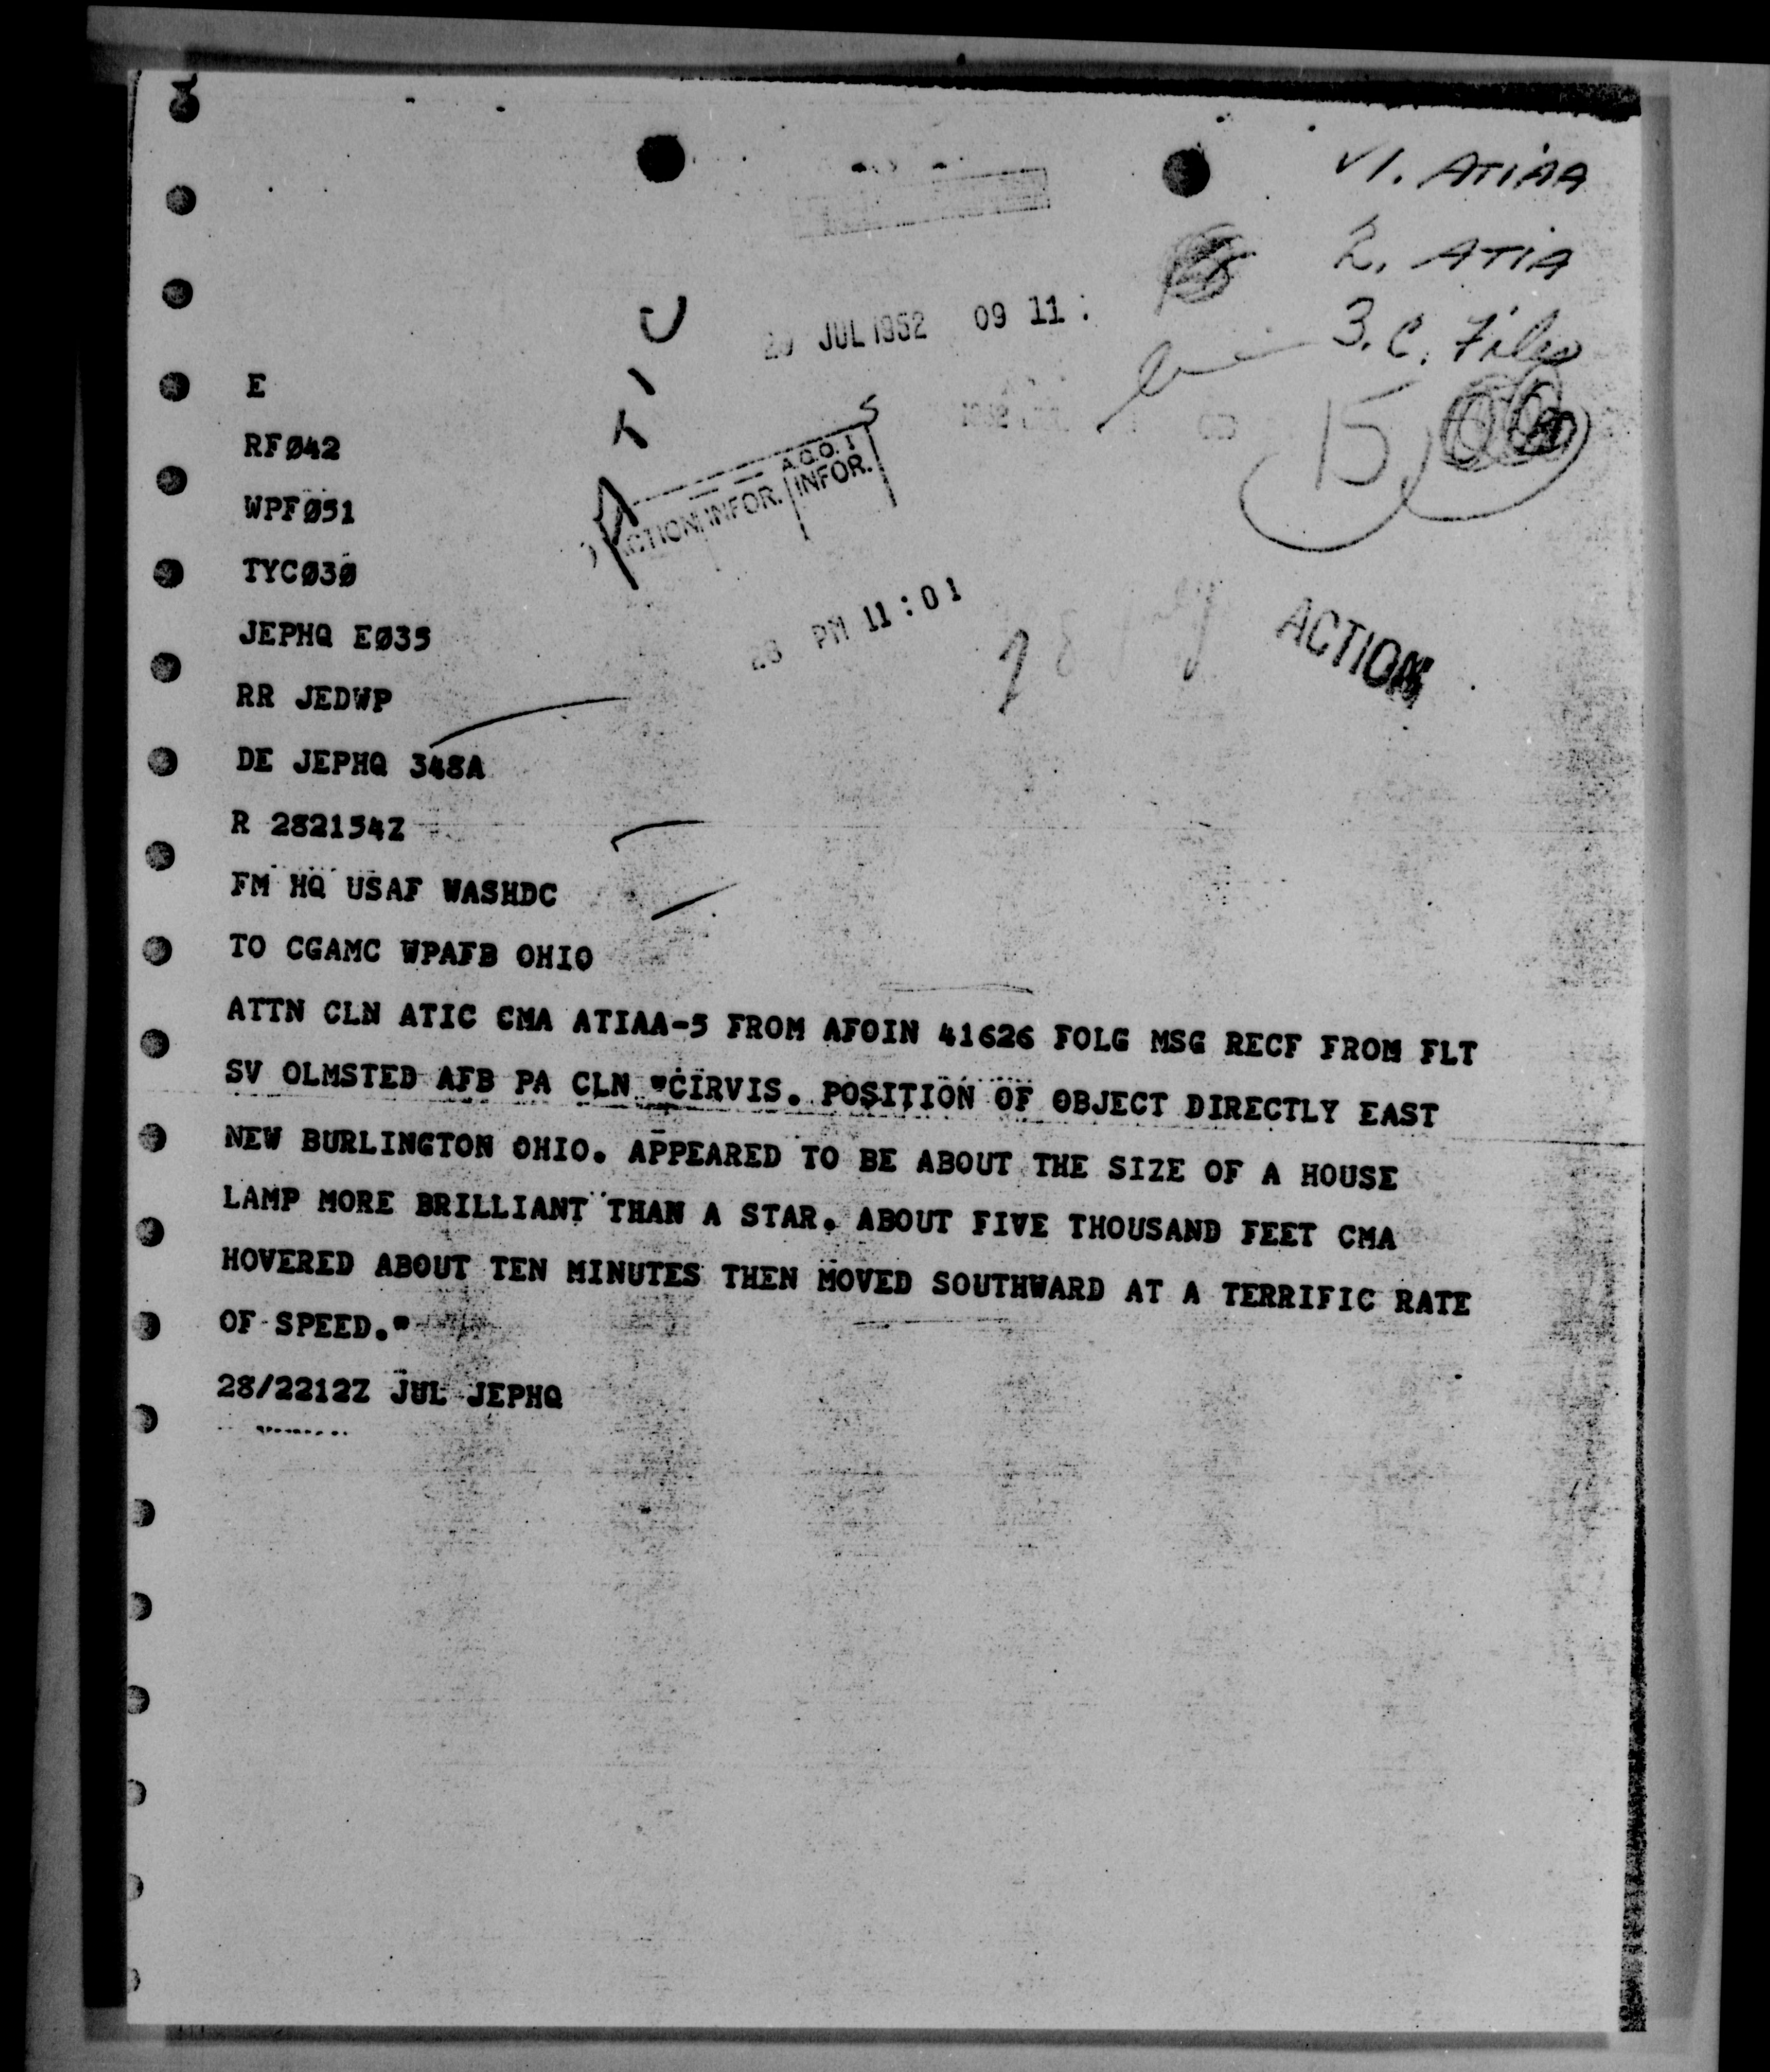 √1. ATIAA
2. ATIA
3. C. Files
JUL 1952 09 11 :
ATIC
15
A.C.O. I
ACTION INFOR. INFOR.
PM 11:01
28 July
ACTION
E
RFØ42
WPFØ51
TYCØ3Ø
JEPHQ EØ35
RR JEDWP
DE JEPHQ 348A
R 282154Z
FM HQ USAF WASHDC
TO CGAMC WPAFB OHIO
ATTN CLN ATIC CMA ATIAA-5 FROM AFOIN 41626 FOLG MSG RECF FROM FLT
SV OLMSTED AFB PA CLN "CIRVIS. POSITION OF OBJECT DIRECTLY EAST
NEW BURLINGTON OHIO. APPEARED TO BE ABOUT THE SIZE OF A HOUSE
LAMP MORE BRILLIANT THAN A STAR. ABOUT FIVE THOUSAND FEET CMA
HOVERED ABOUT TEN MINUTES THEN MOVED SOUTHWARD AT A TERRIFIC RATE
OF SPEED."
28/2212Z JUL JEPHQ